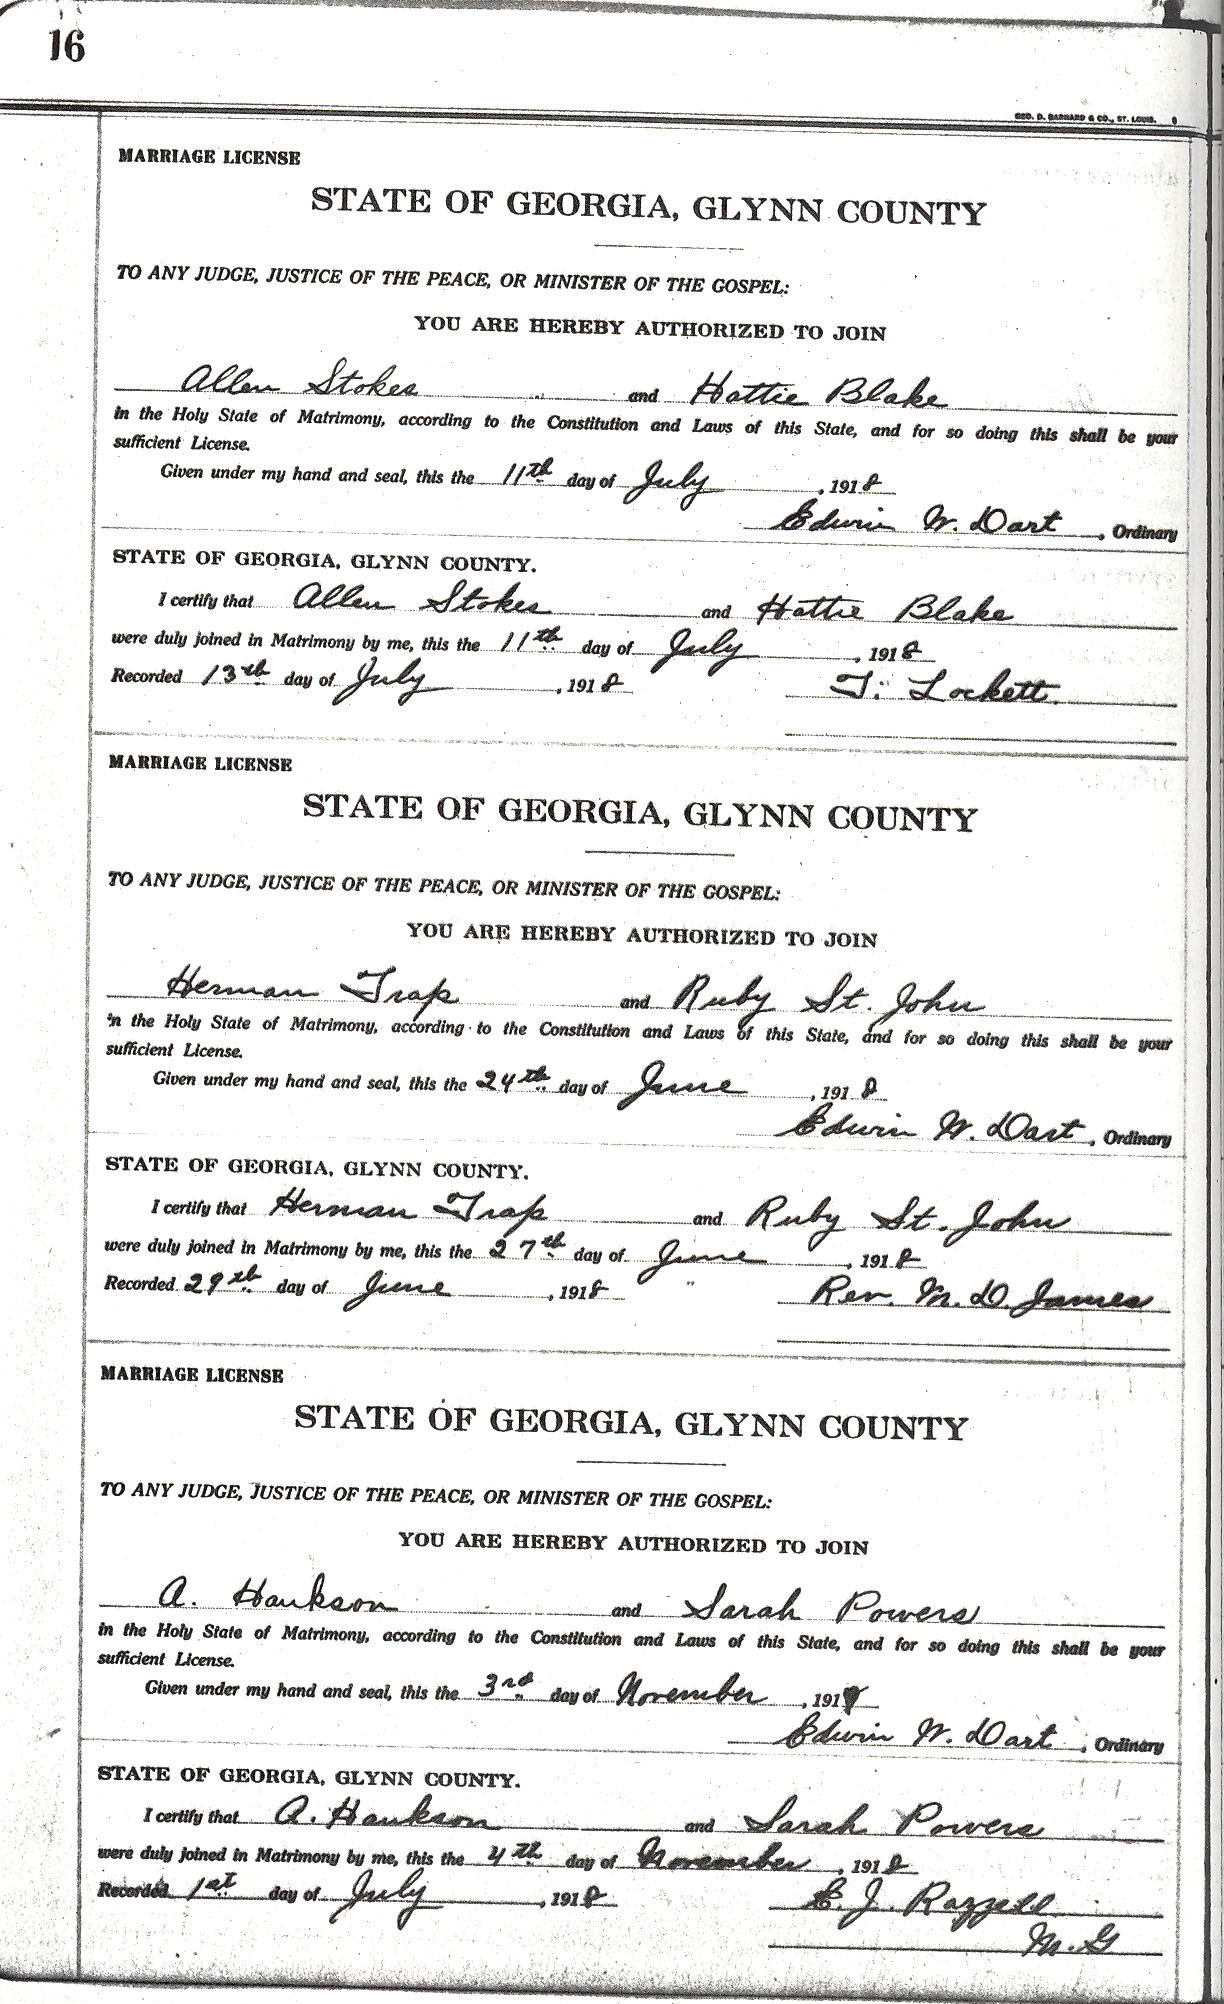 16
GEO. D. BARNARD & CO., ST. LOUIS.
MARRIAGE LICENSE
STATE OF GEORGIA, GLYNN COUNTY
TO ANY JUDGE, JUSTICE OF THE PEACE, OR MINISTER OF THE GOSPEL:
YOU ARE HEREBY AUTHORIZED TO JOIN
Allen Stokes and Hattie Blake
in the Holy State of Matrimony, according to the Constitution and Laws of this State, and for so doing this shall be your
sufficient License.
Given under my hand and seal, this the 11th day of July, 1918
Edwin W. Dart, Ordinary
STATE OF GEORGIA, GLYNN COUNTY.
I certify that Allen Stokes and Hattie Blake
were duly joined in Matrimony by me, this the 11th day of July, 1918
Recorded 13th day of July, 1918 T. Lockett.
MARRIAGE LICENSE
STATE OF GEORGIA, GLYNN COUNTY
TO ANY JUDGE, JUSTICE OF THE PEACE, OR MINISTER OF THE GOSPEL:
YOU ARE HEREBY AUTHORIZED TO JOIN
Herman Trap and Ruby St. John
in the Holy State of Matrimony, according to the Constitution and Laws of this State, and for so doing this shall be your
sufficient License.
Given under my hand and seal, this the 24th day of June, 1918
Edwin W. Dart, Ordinary
STATE OF GEORGIA, GLYNN COUNTY.
I certify that Herman Trap and Ruby St. John
were duly joined in Matrimony by me, this the 27th day of June, 1918
Recorded 29th day of June, 1918 Rev. M. D. James
MARRIAGE LICENSE
STATE OF GEORGIA, GLYNN COUNTY
TO ANY JUDGE, JUSTICE OF THE PEACE, OR MINISTER OF THE GOSPEL:
YOU ARE HEREBY AUTHORIZED TO JOIN
A. Hankson and Sarah Powers
in the Holy State of Matrimony, according to the Constitution and Laws of this State, and for so doing this shall be your
sufficient License.
Given under my hand and seal, this the 3rd day of November, 191
Edwin W. Dart, Ordinary
STATE OF GEORGIA, GLYNN COUNTY.
I certify that A. Hankson and Sarah Powers
were duly joined in Matrimony by me, this the 4th day of November, 1918
Recorded 1st day of July, 1918 E. J. Razzell
M. G